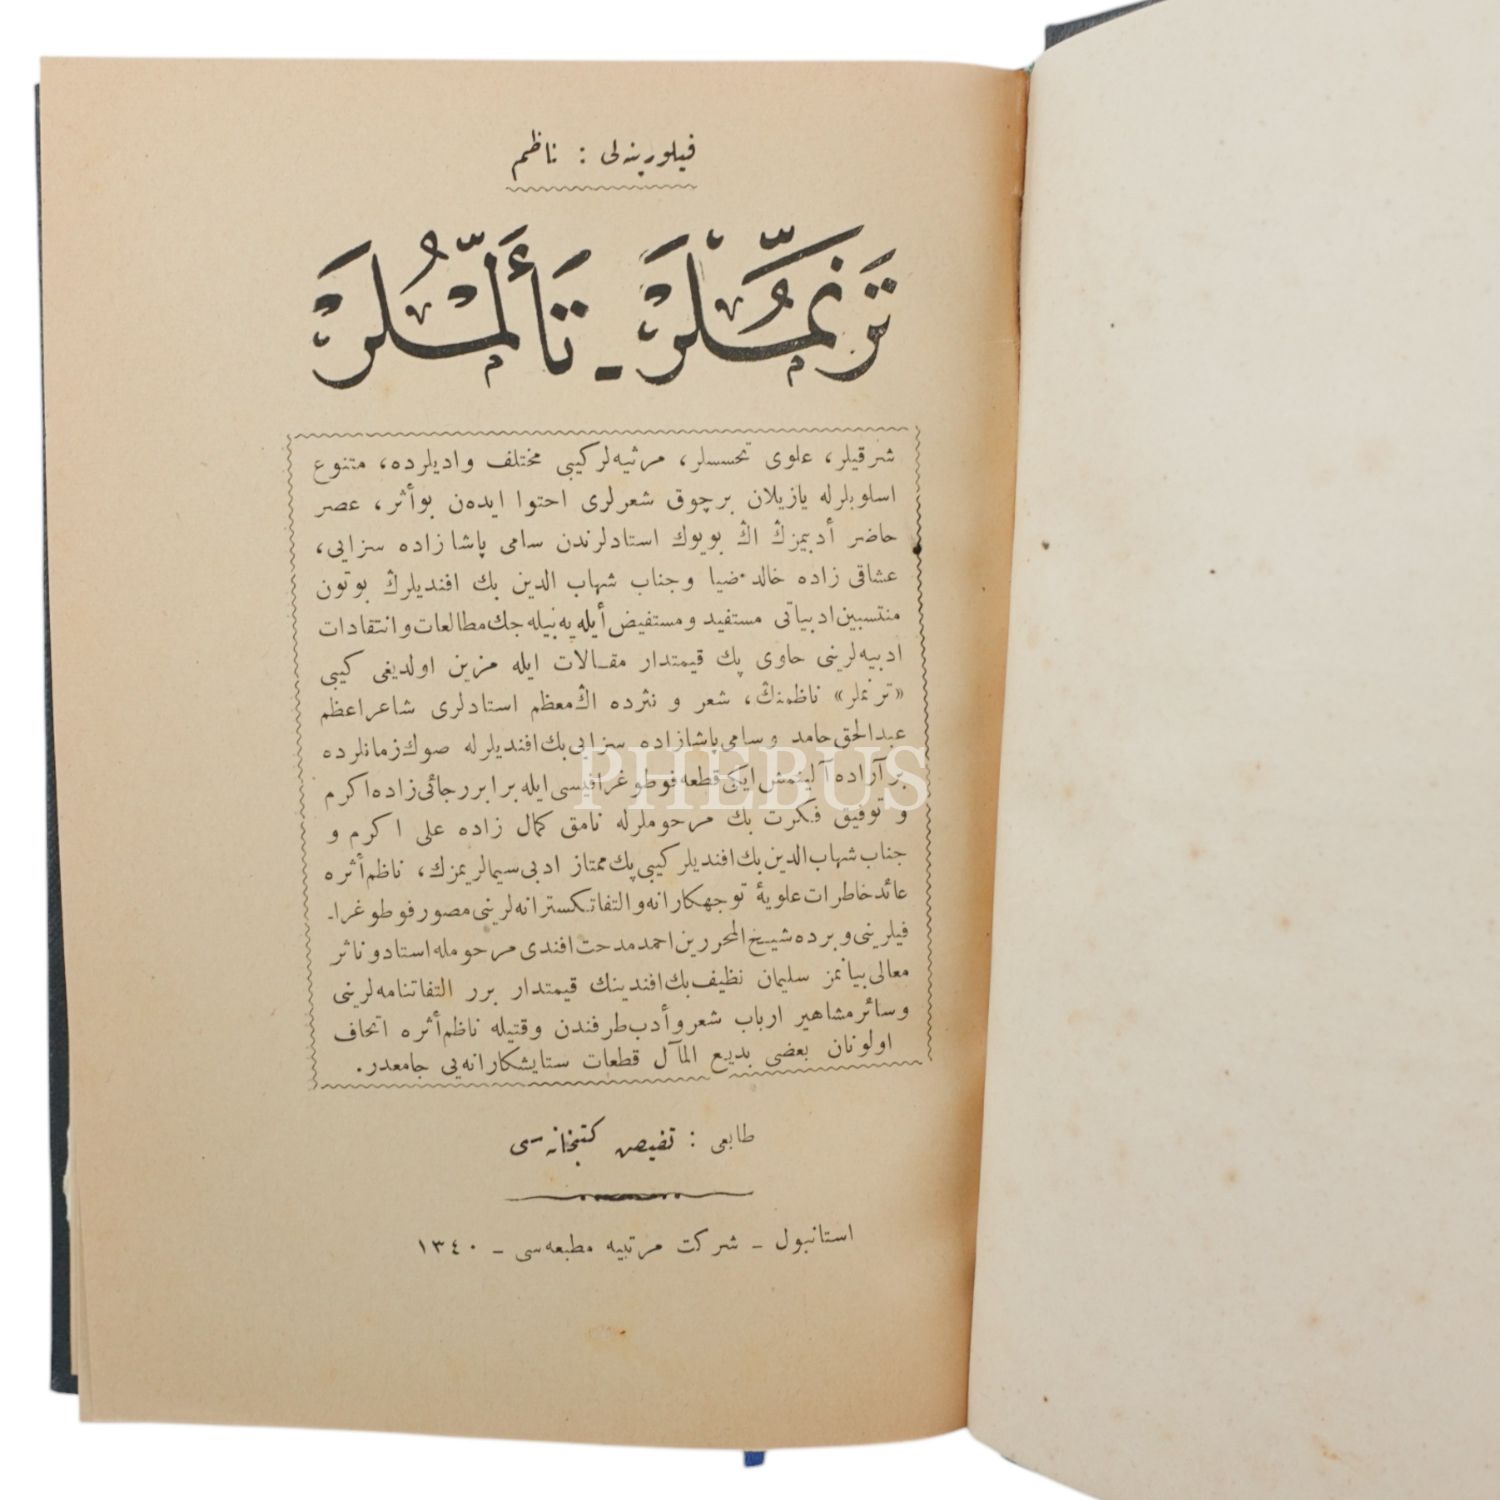 فیلورینه‌لی : ناظم
ترنّملر - تألّملر
شرقیلر، علوی تحسسلر، مرثیه‌لر کیبی مختلف وادیلرده، متنوع
اسلوبلرله یازیلان برچوق شعرلری احتوا ایده‌ن بوأثر، عصر
حاضر أدبیمزڭ اڭ بویوك استادلرندن سامی پاشا زاده سزایی،
عشاقی زاده خالد ضیا و جناب شهاب الدین بك افندیلرڭ بوتون
منتسبین ادبیاتی مستفید و مستفیض أیله‌یه‌بیله‌جك مطالعات و انتقادات
ادبیه‌لرینی حاوی پك قیمتدار مقالات ایله مزین اولدیغی کیبی
«ترنملر» ناظمنڭ، شعر و نثرده اڭ معظم استادلری شاعراعظم
عبدالحق حامد و سامی پاشازاده سزایی بك افندیلرله صوڭ زمانلرده
بر آراده آلینمش ایکی قطعه فوطوغرافیسی ایله برابر رجائی زاده اکرم
و توفیق فکرت بك مرحوملرله نامق کمال زاده علی اکرم و
جناب شهاب الدین بك افندیلر کیبی پك ممتاز ادبی سیمالریمزك، ناظم أثره
عائد خاطرات علویهٔ توجهکارانه و التفاتکسترانه‌لرینی مصور فوطوغرا-
فیلرینی و برده شیخ المحررین احمد مدحت افندی مرحومله استاد و ناثر
معالی بیانمز سلیمان نظیف بك افندینك قیمتدار برر التفاتنامه‌لرینی
و سائر مشاهیر ارباب شعر و أدب طرفندن وقتیله ناظم أثره اتحاف
اولونان بعضی بدیع المآل قطعات ستایشکارانه‌یی جامعدر.
طابعی : تفیض کتبخانه‌سی
استانبول - شرکت مرتبیه مطبعه‌سی - ١٣٤٠
PHEBUS